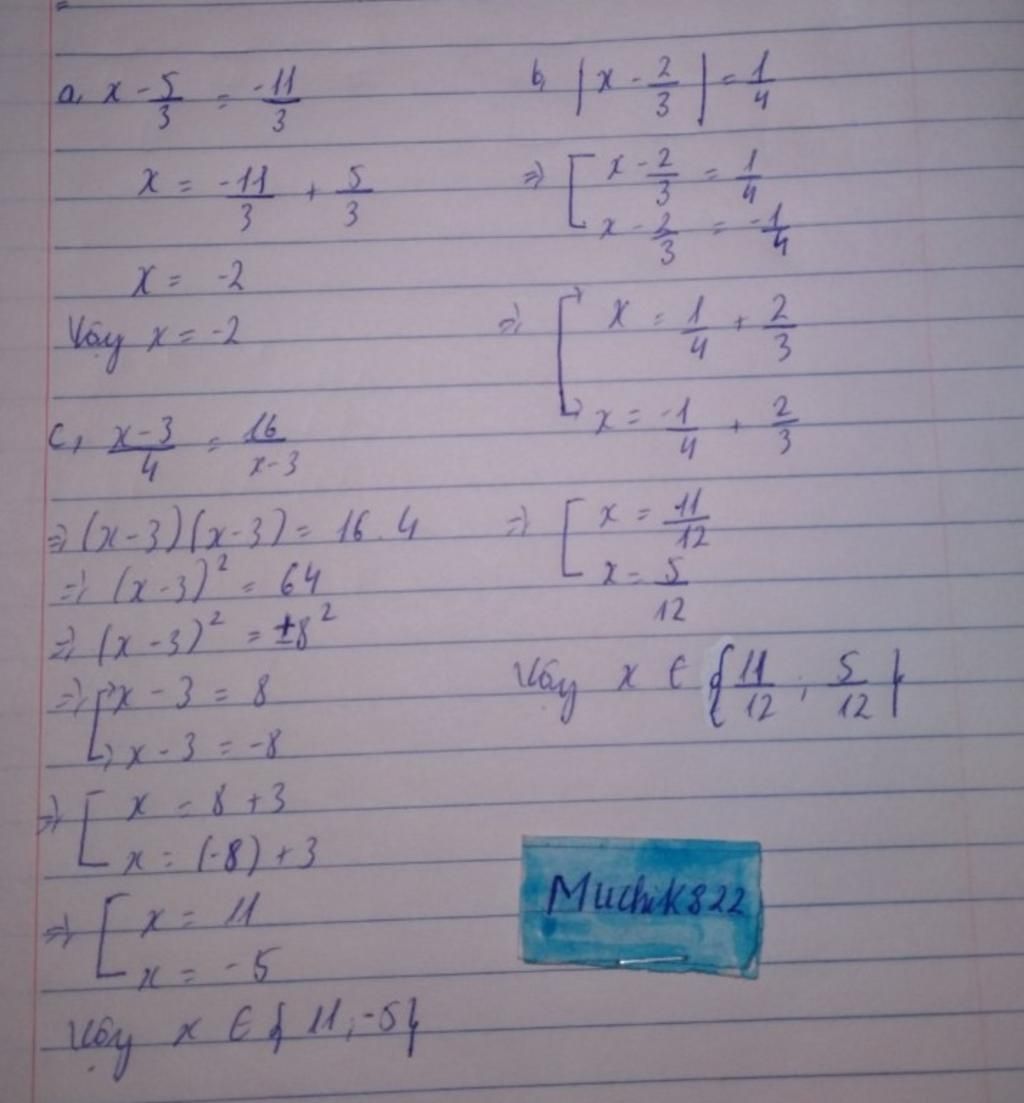 a, x - 5/3 = -11/3
x = -11/3 + 5/3
x = -2
Vậy x = -2
b, |x - 2/3| = 1/4
=> [ x - 2/3 = 1/4
x - 2/3 = -1/4
=> [ x = 1/4 + 2/3
x = -1/4 + 2/3
=> [ x = 11/12
x = 5/12
Vậy x ∈ { 11/12 ; 5/12 }
c, x-3/4 = 16/x-3
=> (x-3)(x-3) = 16.4
=> (x-3)² = 64
=> (x-3)² = ±8²
=> [ x - 3 = 8
x - 3 = -8
=> [ x = 8 + 3
x = (-8) + 3
=> [ x = 11
x = -5
Vậy x ∈ { 11 ; -5 }
Muchik822